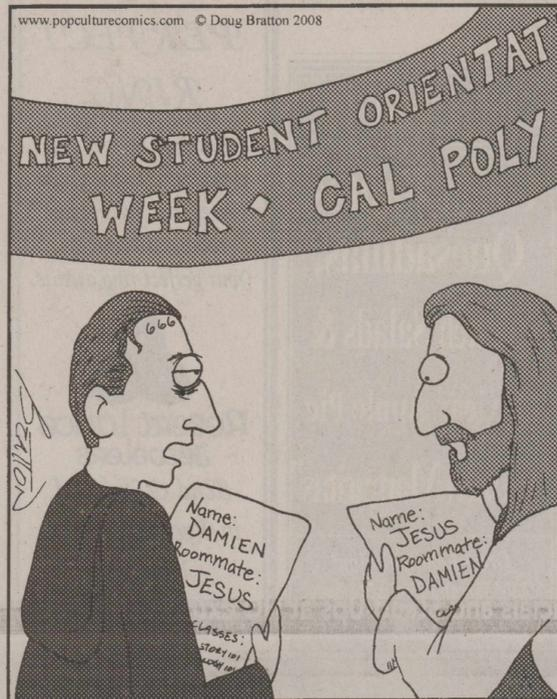 www.popculturecomics.com © Doug Bratton 2008
NEW STUDENT ORIENTAT
WEEK • CAL POLY
666
Bratton
Name:
DAMIEN
Roommate:
JESUS
CLASSES:
STORY 101
LOGY 101
Name:
JESUS
Roommate:
DAMIEN